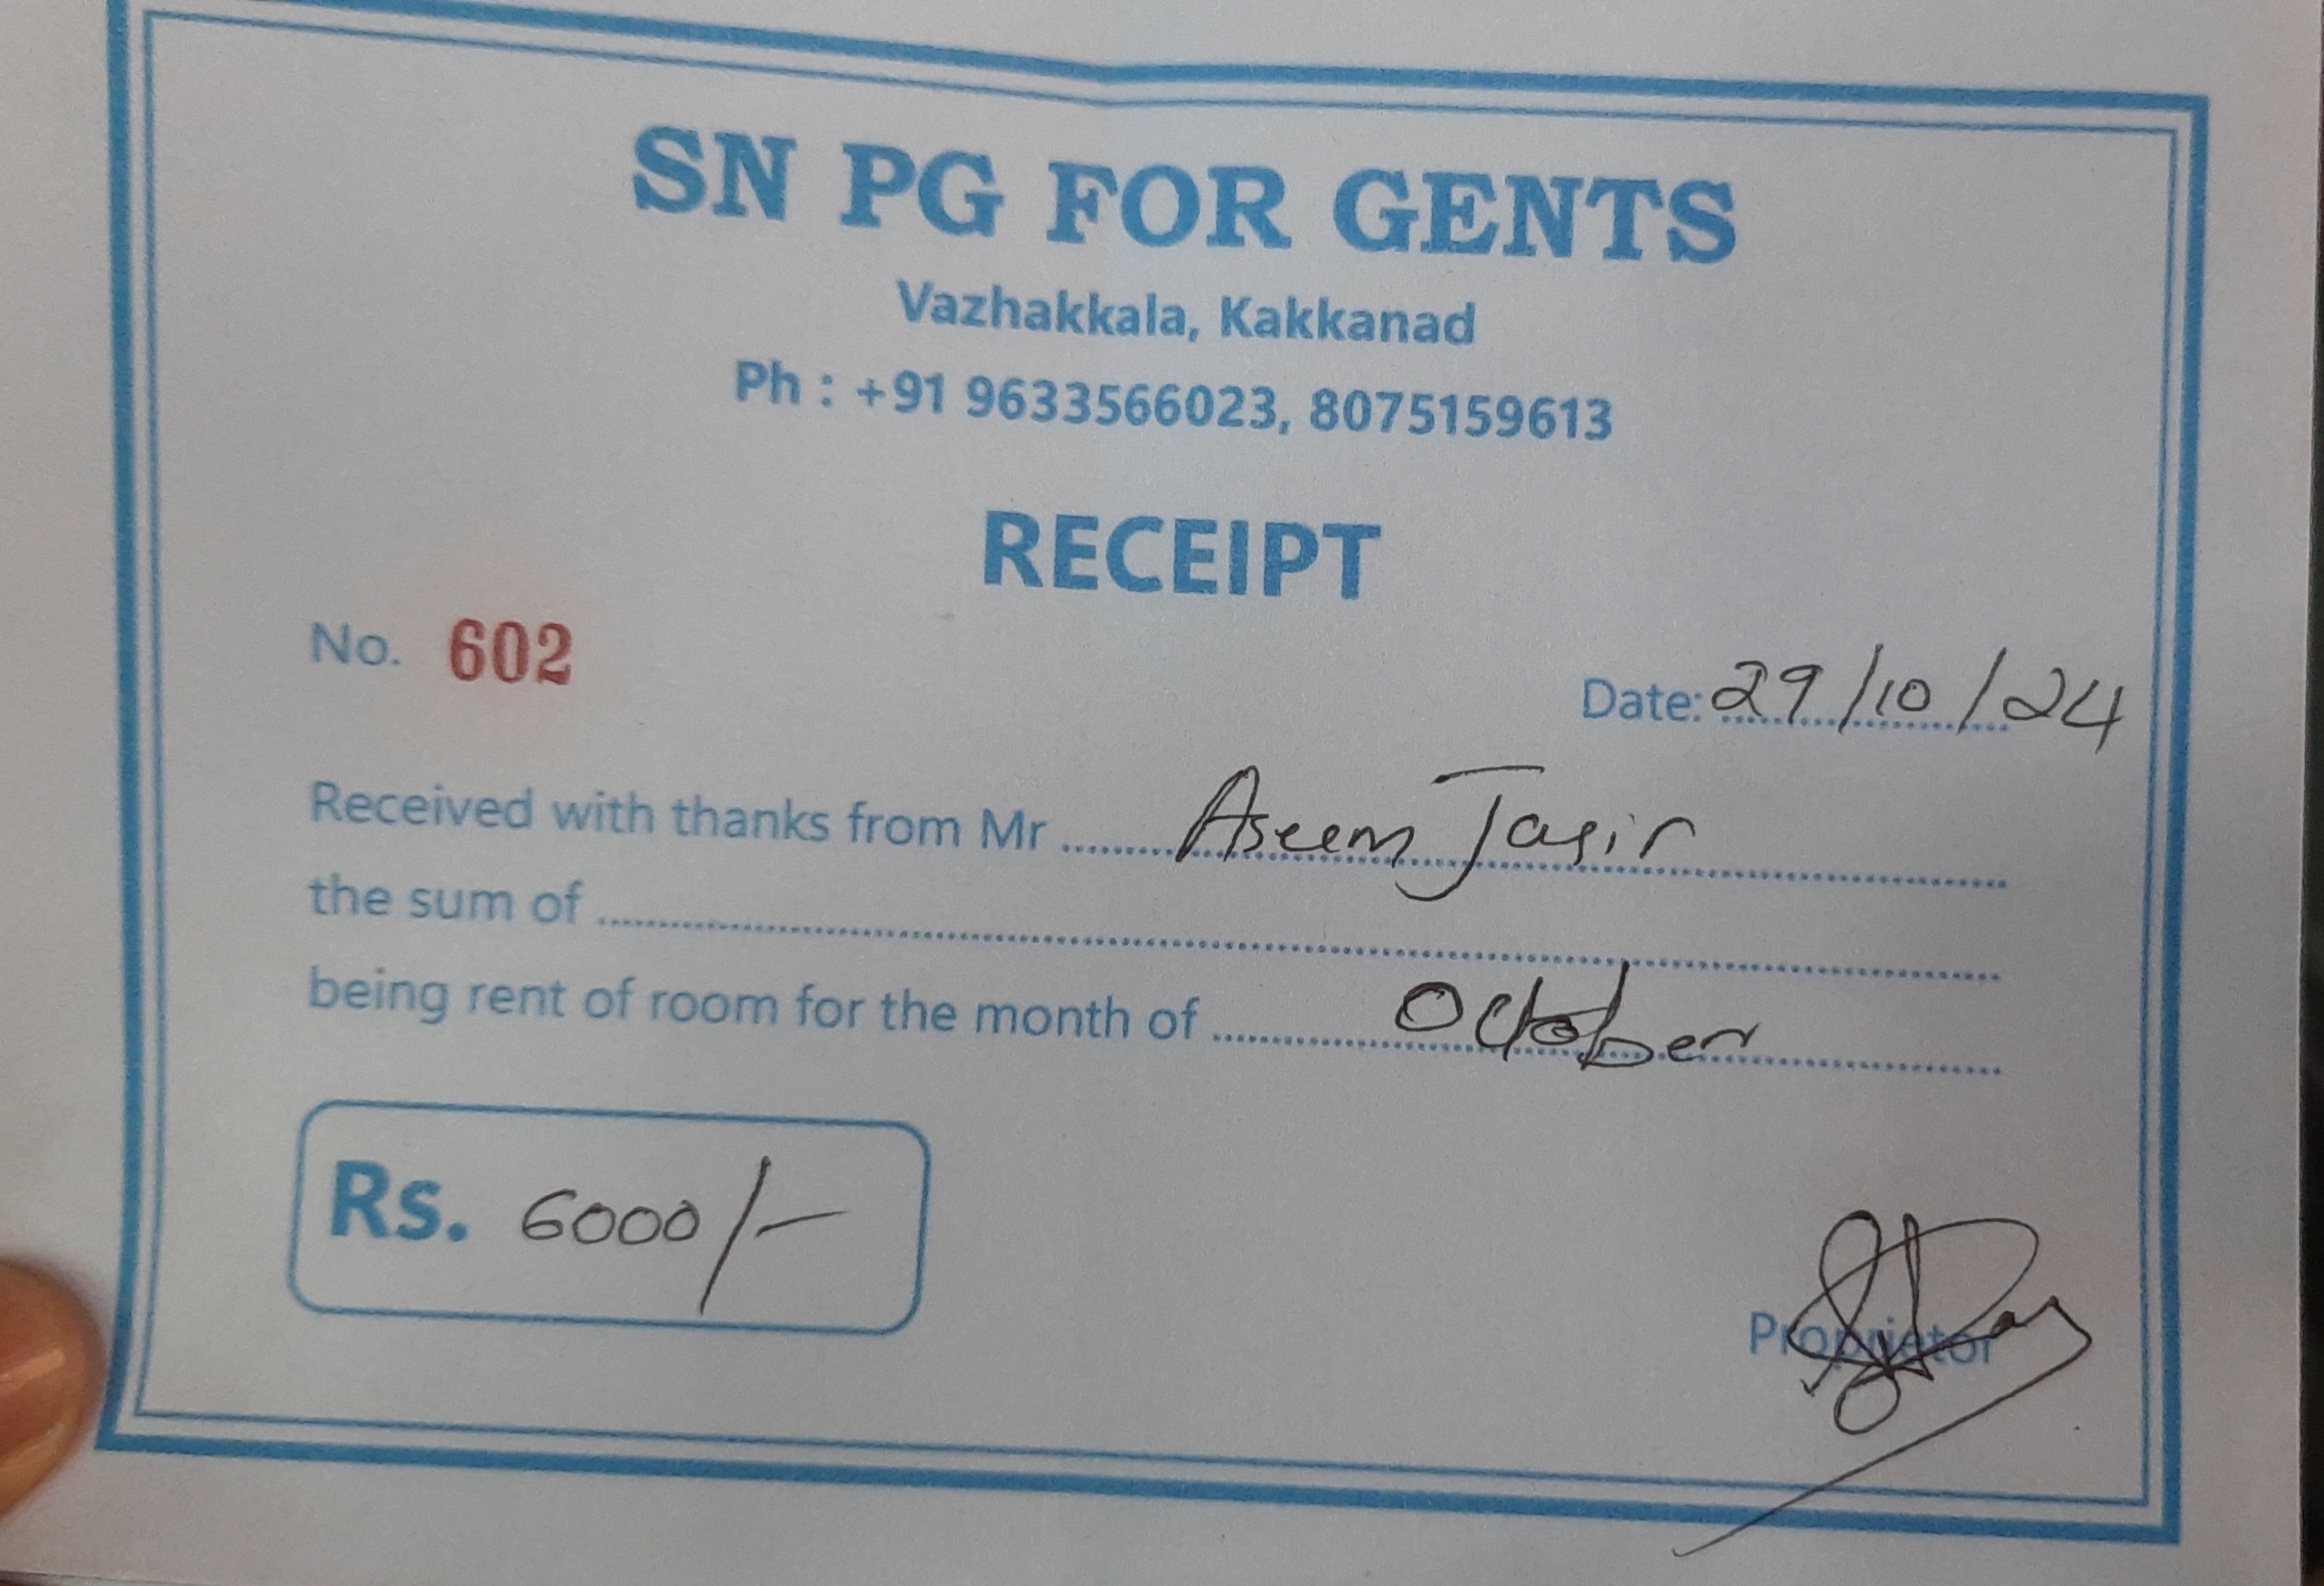 SN PG FOR GENTS
Vazhakkala, Kakkanad
Ph : +91 9633566023, 8075159613
RECEIPT
No. 602
Date: 29/10/24
Received with thanks from Mr Aseem Jasir
the sum of
being rent of room for the month of October
Rs. 6000/-
Proprietor